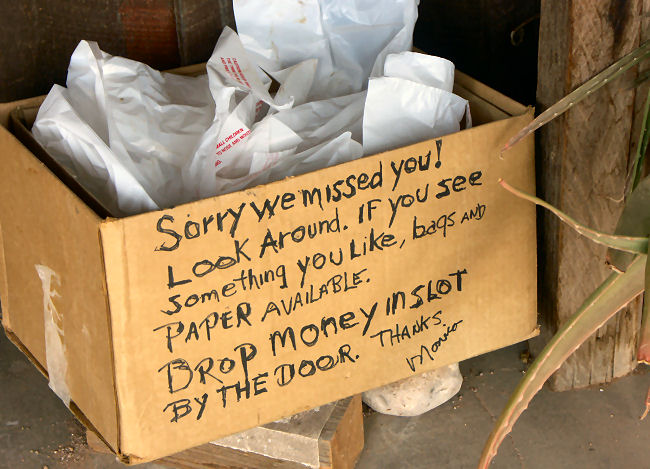 Sorry we missed you!
Look Around. If you see
something you like, bags and
paper available.
Drop money in slot
by the door. Thanks
ALL CHILDREN